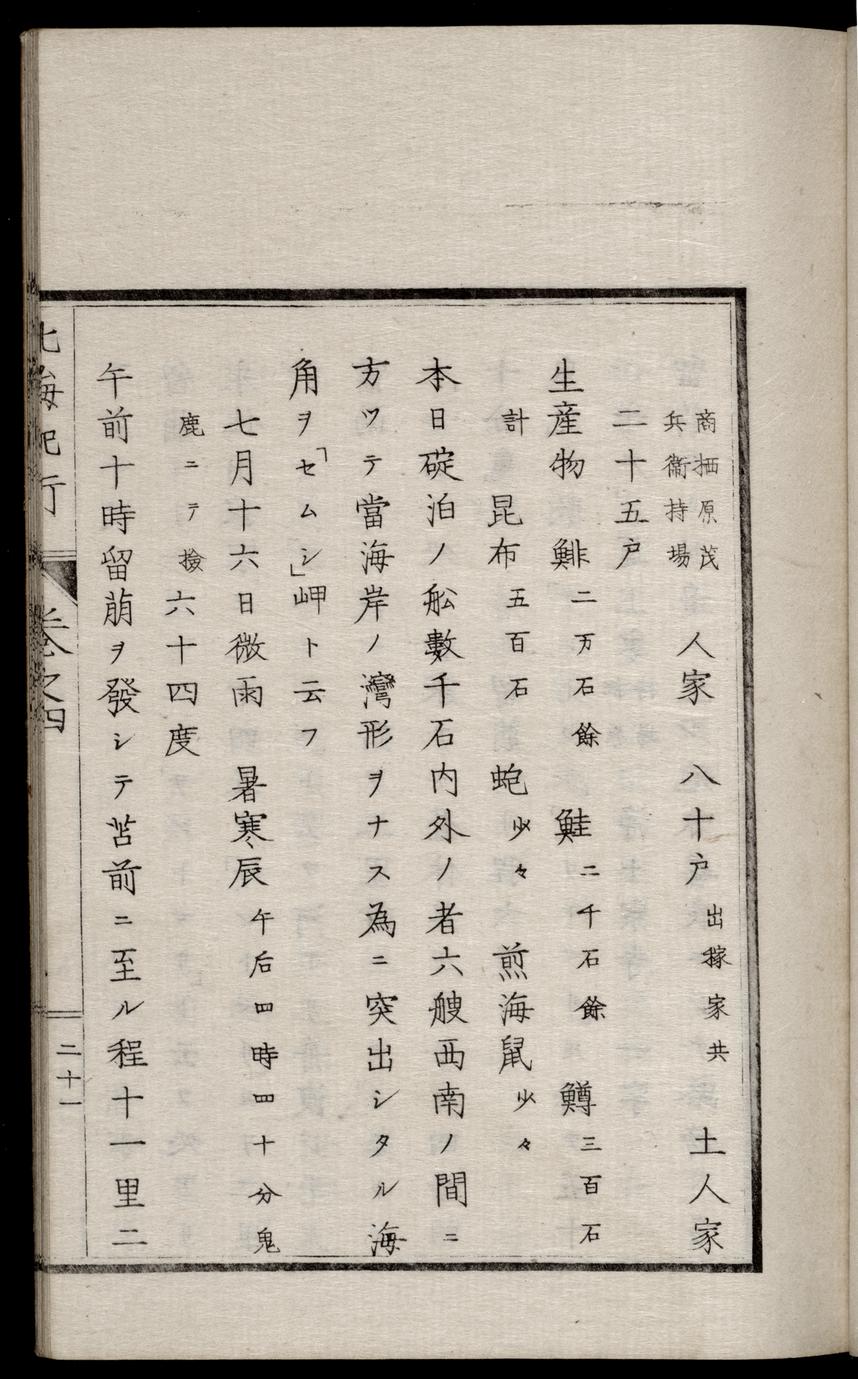 商栖原茂
兵衞持場
人家八十戸 出稼家共 土人家
二十五戸
生産物 鯡 二万石餘 鮭 二千石餘 鱒 三百石
計 昆布 五百石 蚫 少々 煎海鼠 少々
本日碇泊ノ舩數千石内外ノ者六艘西南ノ間ニ
方ツテ當海岸ノ灣形ヲナス為ニ突出シタル海
角ヲ「セムシ」岬ト云フ
七月十六日微雨 暑寒辰 午后四時四十分鬼
鹿ニテ撿 六十四度
午前十時留萠ヲ發シテ苫前ニ至ル程十一里二
北海紀行
卷之四
二十一